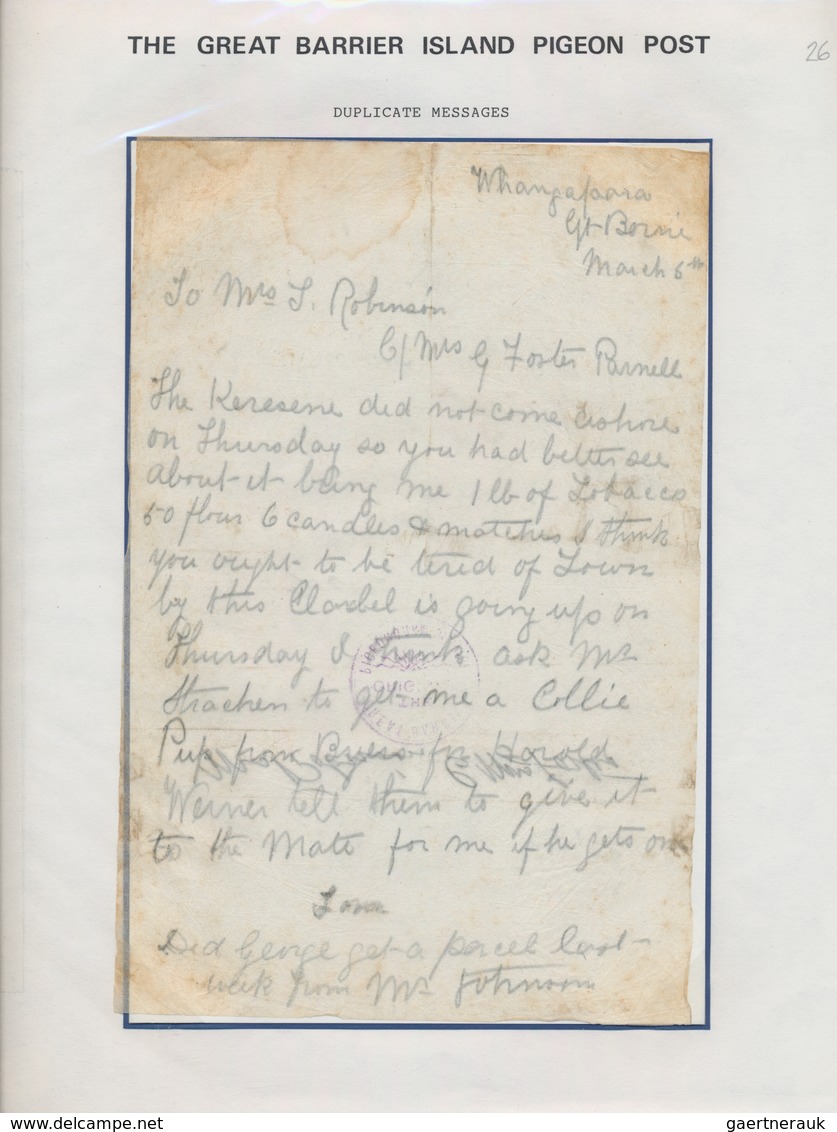 THE GREAT BARRIER ISLAND PIGEON POST
26
DUPLICATE MESSAGES
Whangapara
Gt Barrie
March 6th
To Mrs T. Robinson
C/ Mrs G Foster Parnell
The Keresene did not come ashore
on Thursday so you had better see
about it bring me 1 lb of Tobacco
50 flour 6 candles & matches I think
you ought to be tired of Town
by this Clarbel is going up on
Thursday I think ask Mr
Strachen to get me a Collie
Pup from for Harold
Werner tell them to give it
to the Mate for me if he gets one
Tom
Did George get a parcel last
week from Mr Johnson
delcampe.net
gaertnerauk